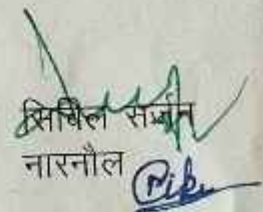 सिविल सर्जन
नारनौल